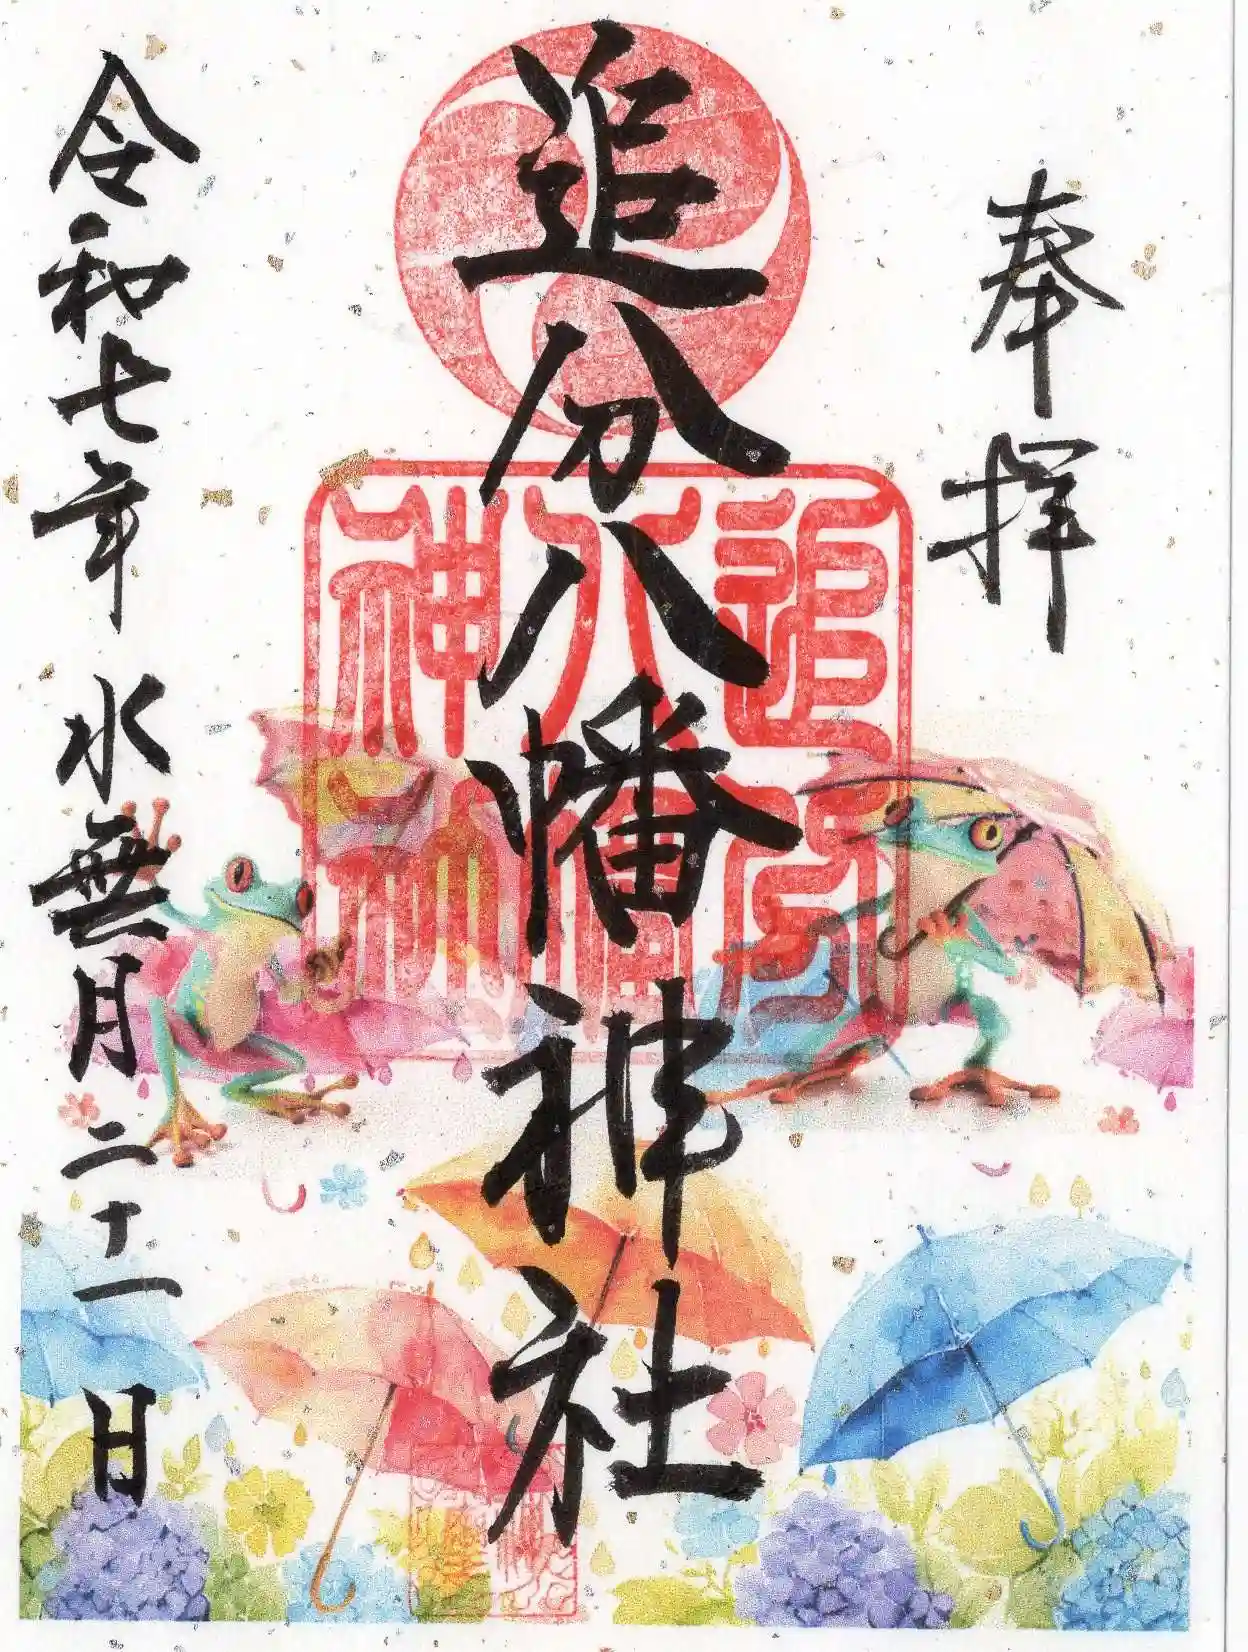 奉拝
追分八幡神社
追分八幡神社
令和七年 水無月二十一日